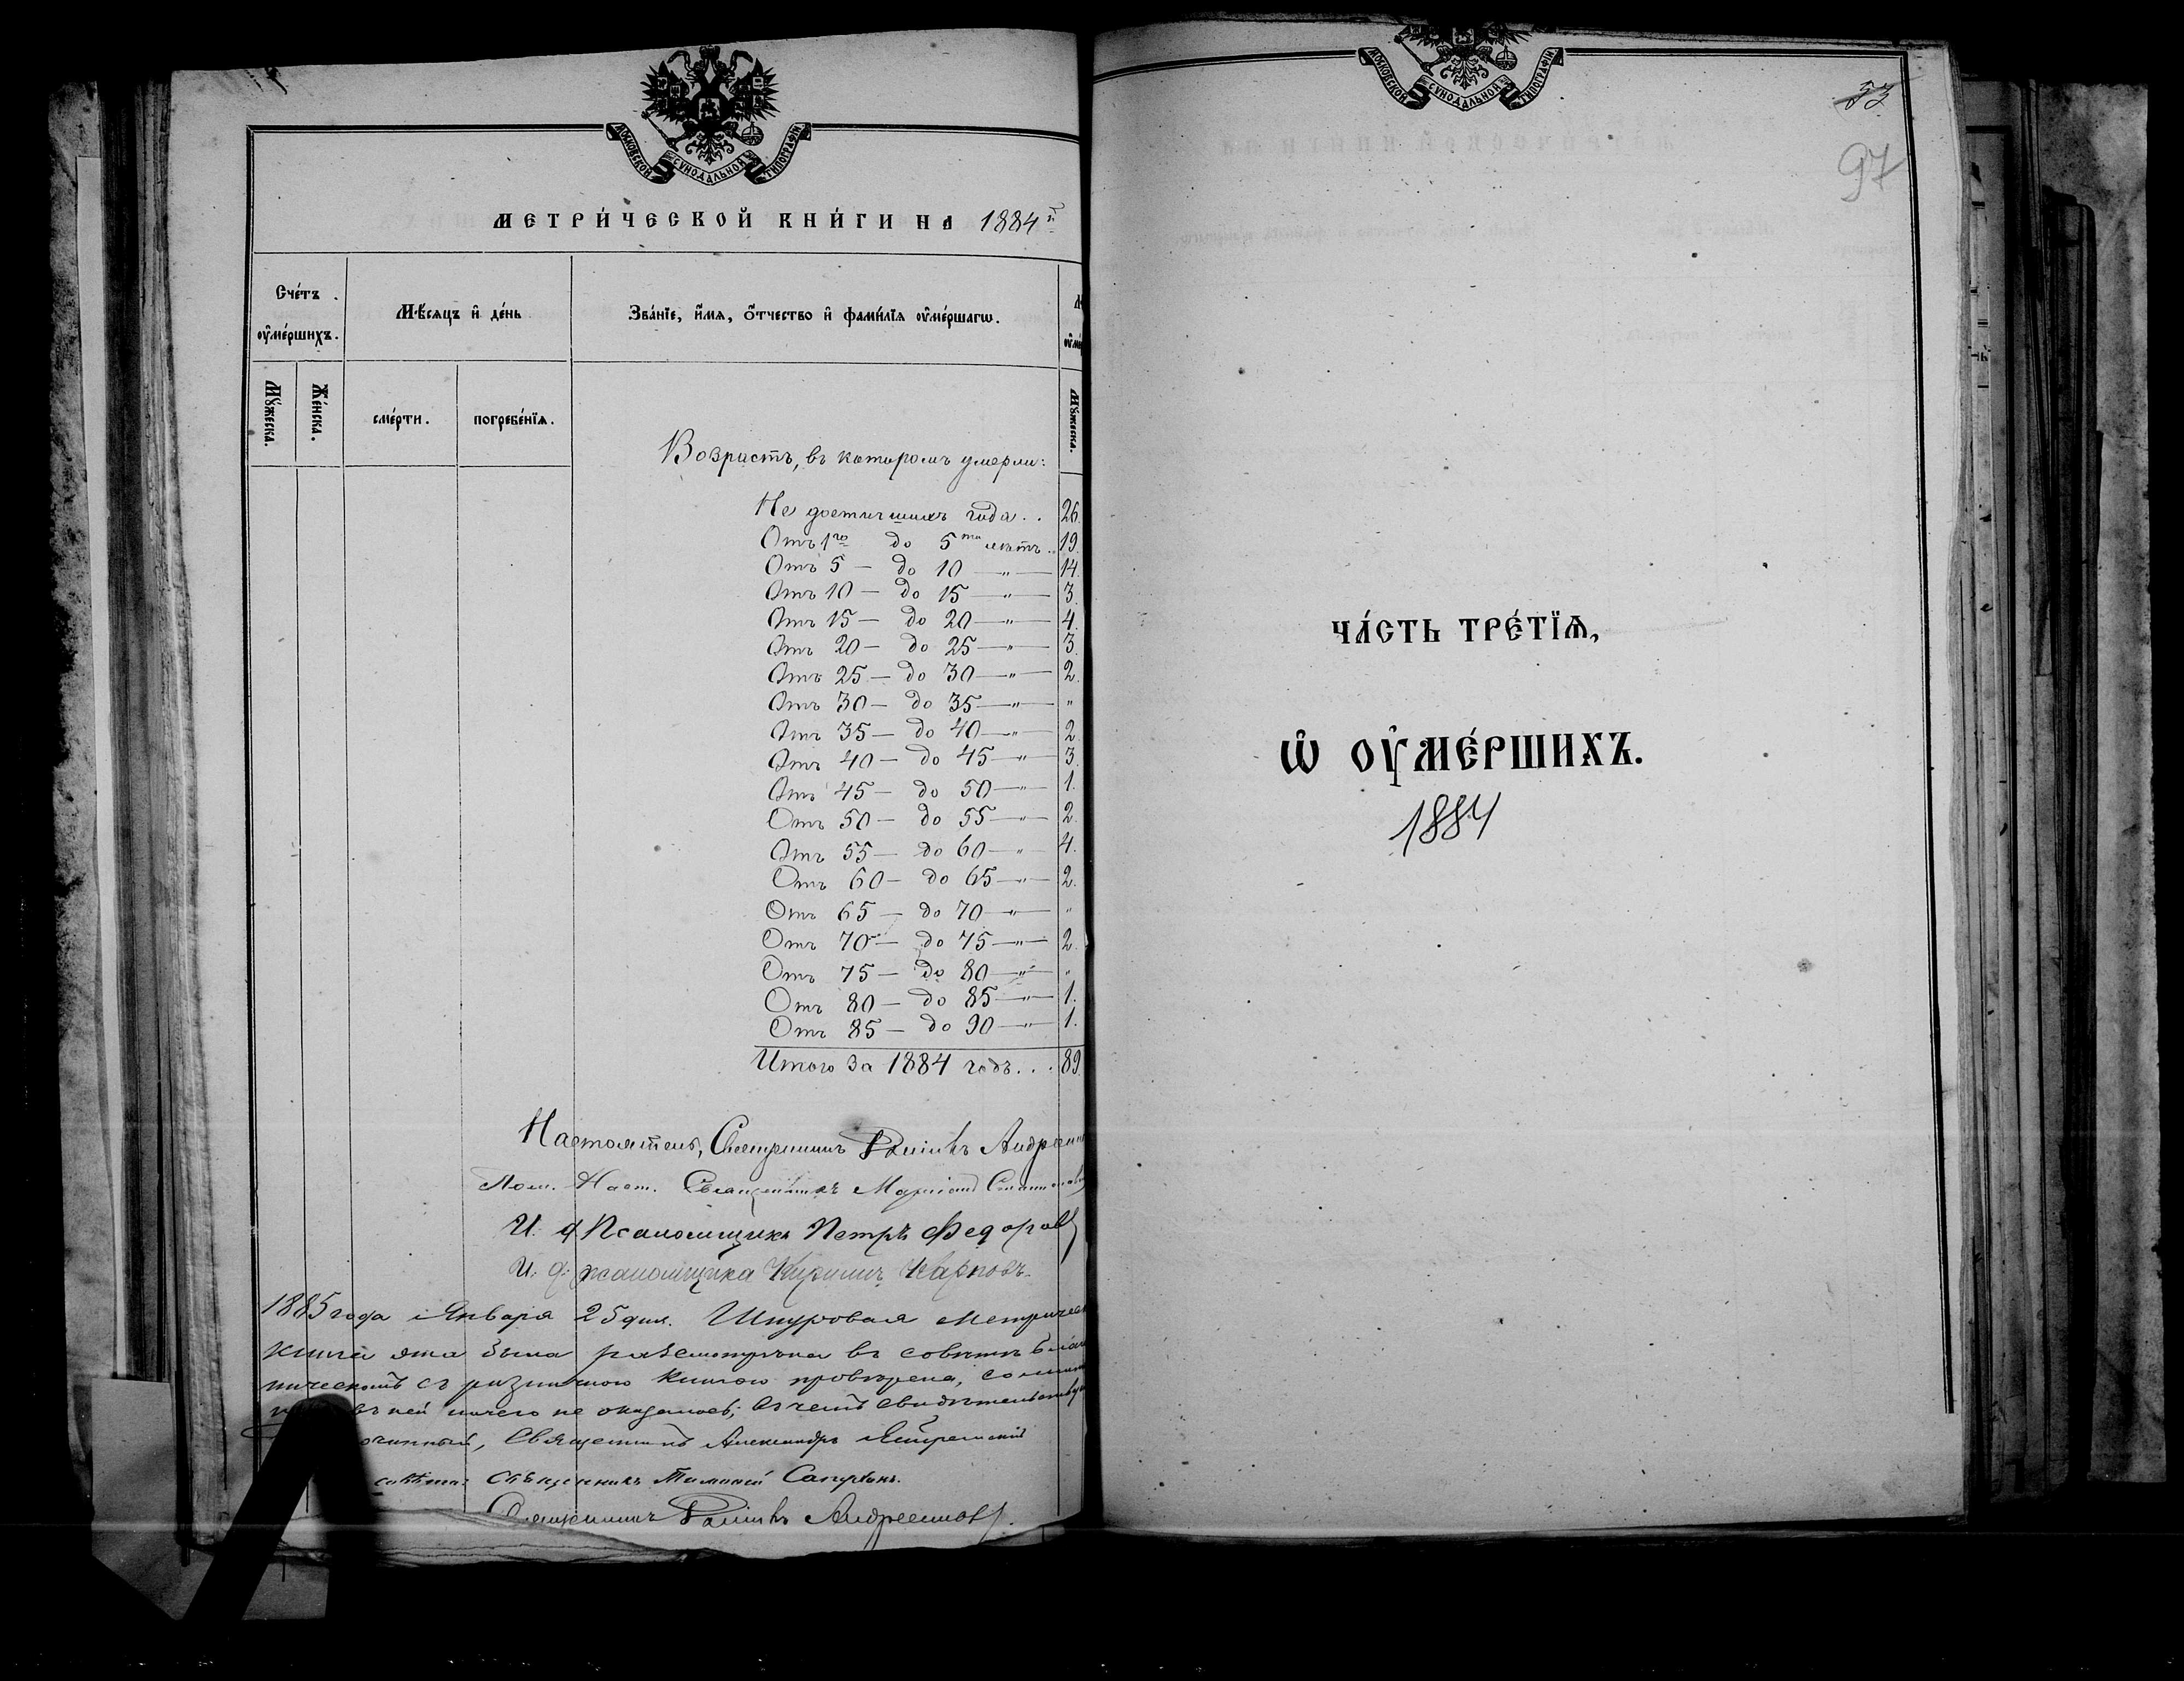 МОСКОВСКОЙ СУНОДАЛЬНОЙ ТИПОГРАФІИ
МЕТРИ́ЧЕСКОЙ КНИ́ГИ НА 1884 й
Сче́тъ оу҆ме́ршихъ.
Мѣ́сяцъ и҆ де́нь
Зва́нїе, и҆́мѧ, ѻ҆́тчество и҆ фами́лїѧ оу҆ме́ршагѡ.
Мꙋ́жеска.
Же́нска.
сме́рти.
погребе́нїѧ.
Мꙋ́жеска.
Возрастъ, въ которомъ умерли:
Не достигшихъ года . . 26.
Отъ 1го до 5ти лѣтъ . . 19.
Отъ 5 — до 10 — „ — 14.
Отъ 10 — до 15 — „ — 3.
Отъ 15 — до 20 — „ — 4.
Отъ 20 — до 25 — „ — 3.
Отъ 25 — до 30 — „ — 2.
Отъ 30 — до 35 — „ — „
Отъ 35 — до 40 — „ — 2.
Отъ 40 — до 45 — „ — 3.
Отъ 45 — до 50 — „ — 1.
Отъ 50 — до 55 — „ — 2.
Отъ 55 — до 60 — „ — 4.
Отъ 60 — до 65 — „ — 2.
Отъ 65 — до 70 — „ — „
Отъ 70 — до 75 — „ — 2.
Отъ 75 — до 80 — „ — „
Отъ 80 — до 85 — „ — 1.
Отъ 85 — до 90 — „ — 1.
Итого за 1884 годъ . . . 89.
Настоятель, Священникъ
Пом. Наст. Священникъ
И. д. Псаломщика Петръ Федоровъ
И. д. псаломщика Кирилъ Карповъ
1885 года Января 25 дня. Шнуровая
книга эта была разсмотрѣна въ совѣтѣ
съ книгою провѣрена,
въ ней ничего не оказалось; въ чемъ
Священникъ Александръ
Священникъ
Священникъ
МОСКОВСКОЙ СУНОДАЛЬНОЙ ТИПОГРАФІИ
53
97
ЧА́СТЬ ТРЕ́ТЇѦ,
Ѡ҆ ОУ҆МЕ́РШИХЪ.
1884